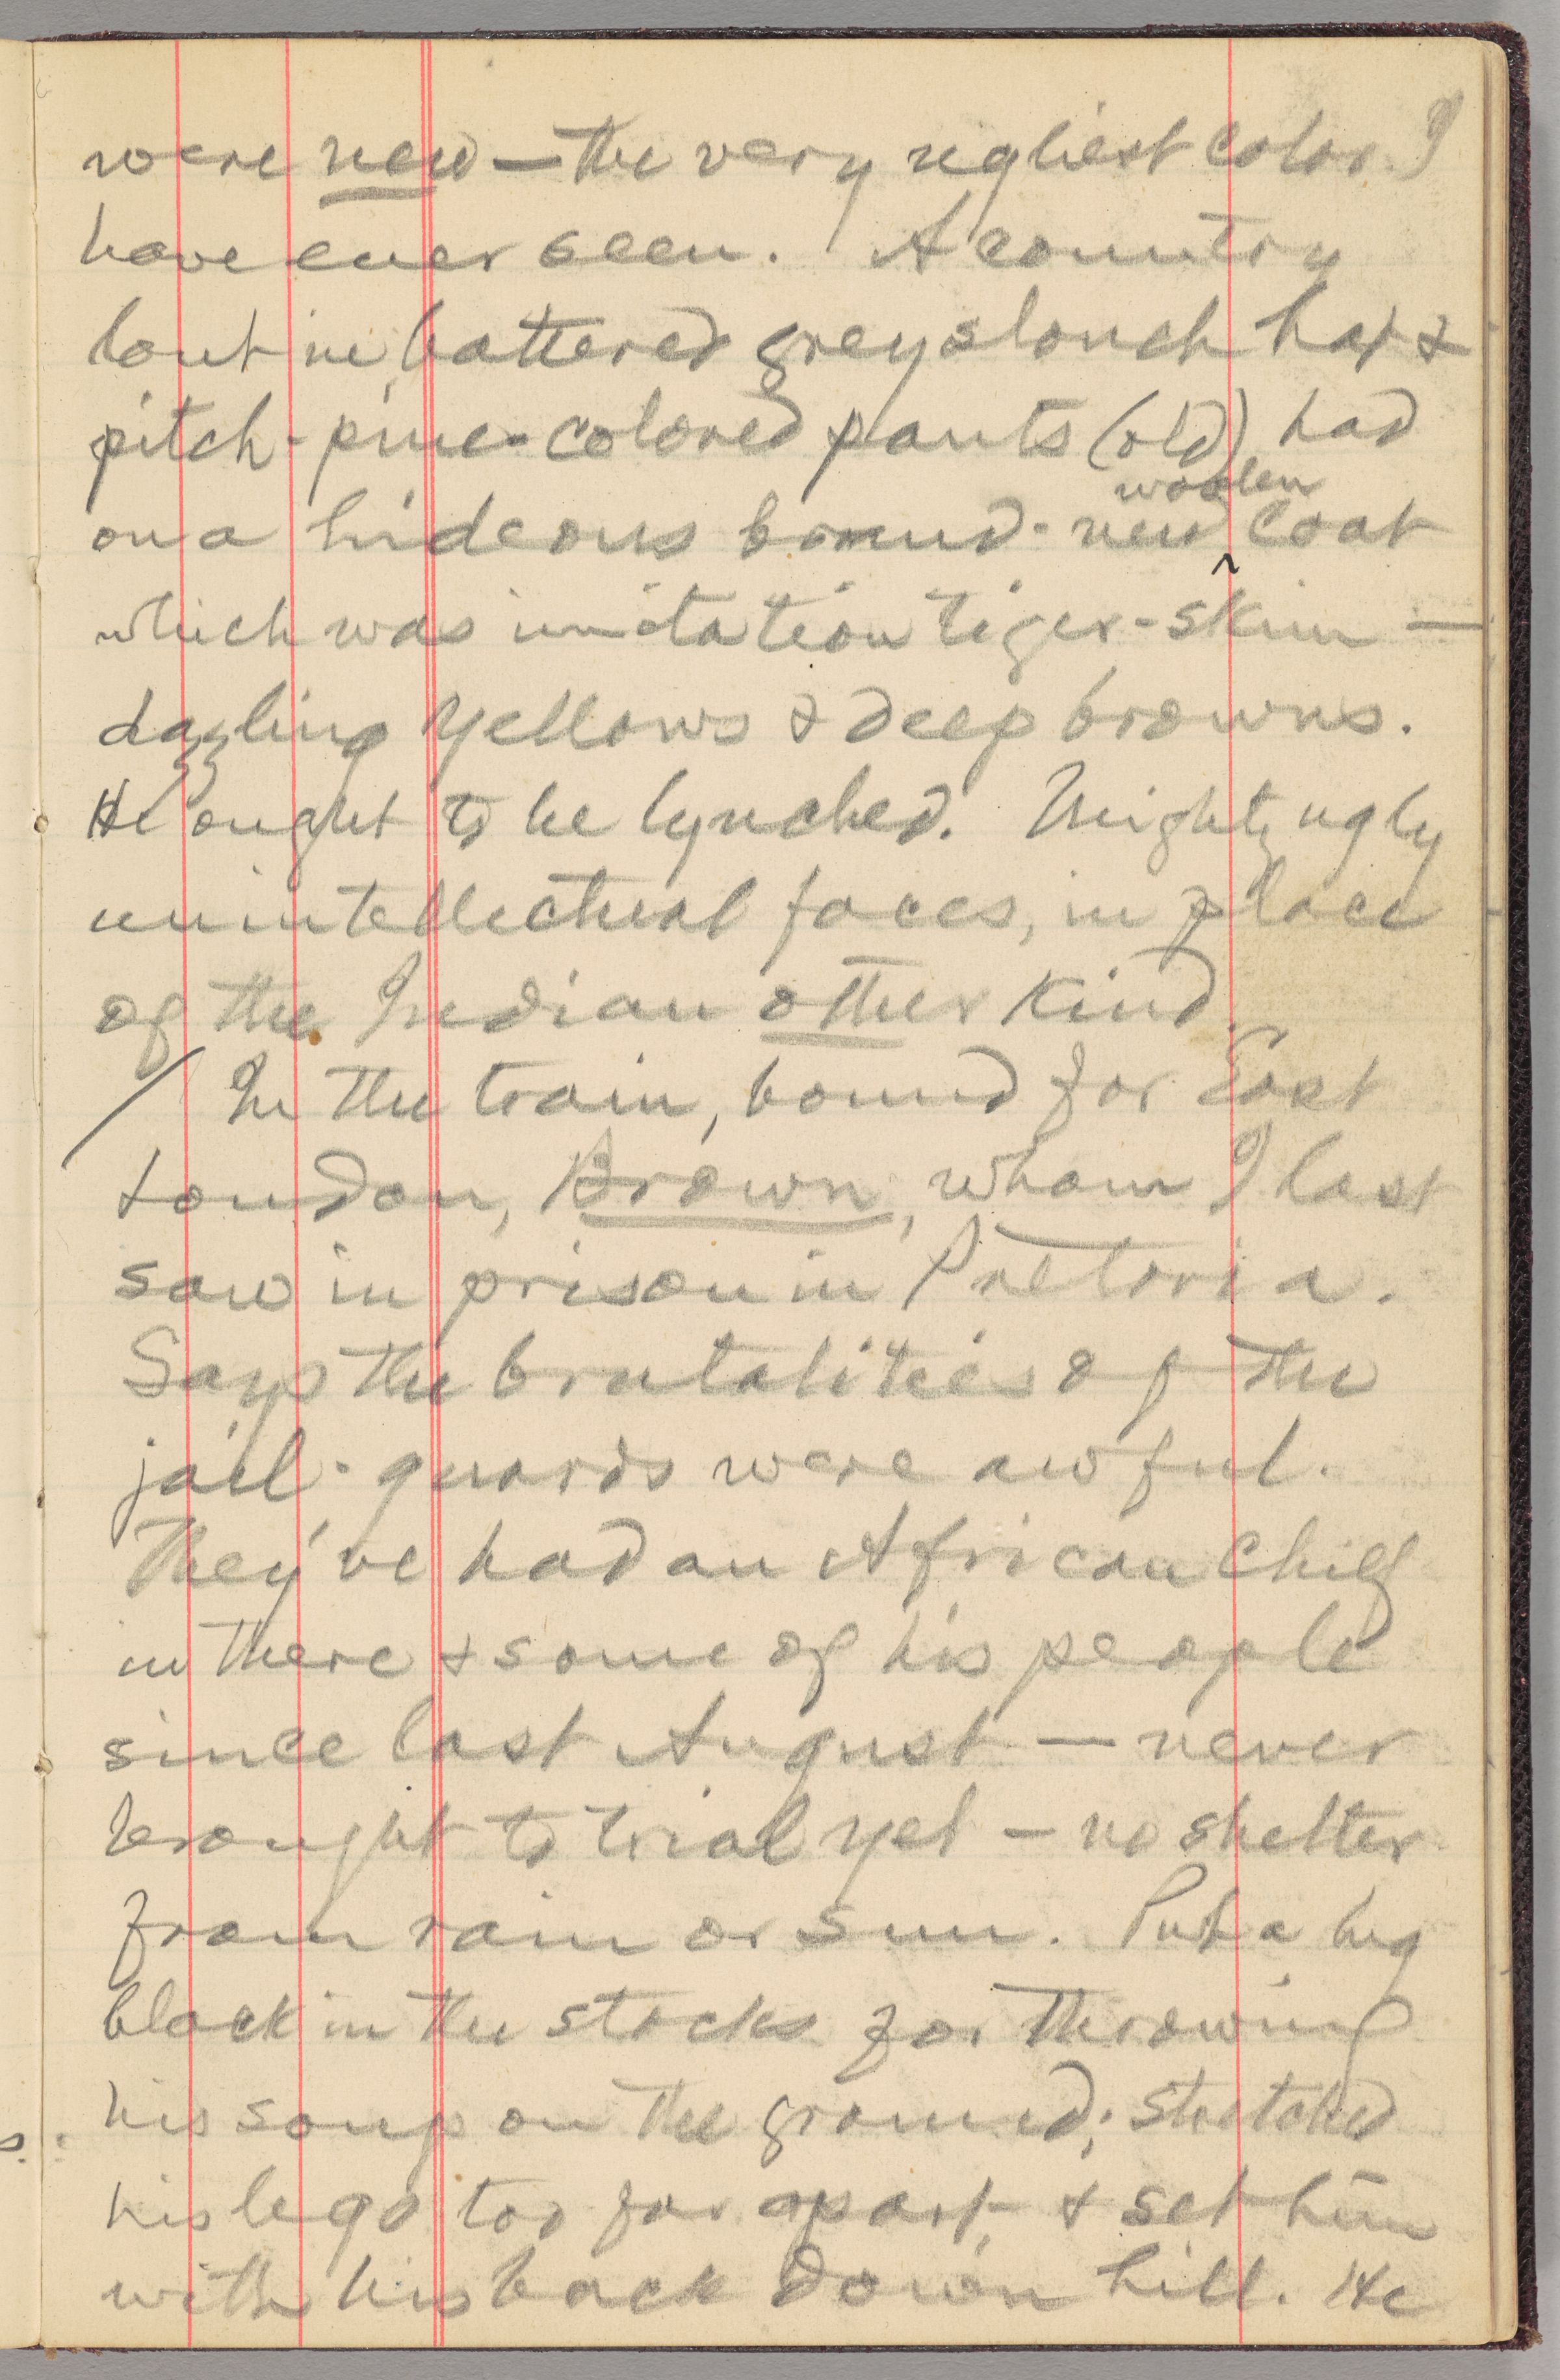 were new — the very ugliest color I
have ever seen. A country
lout in battered grey slouch hat &
pitch-pine-colored pants (old) had
on a hideous brand-new woolen coat
which was imitation tiger-skin —
dazzling yellows & deep browns.
He ought to be lynched. Mighty ugly
unintellectual faces, in place
of the Indian other kind.
/ In the train, bound for East
London, Brown, whom I last
saw in prison in Pretoria.
Says the brutalities of the
jail-guards were awful.
They've had an African chief
in there & some of his people
since last August — never
brought to trial yet — no shelter
from rain or sun. Put a big
black in the stocks for throwing
his soup on the ground; stretched
his legs too far apart & set him
with his back down hill. He